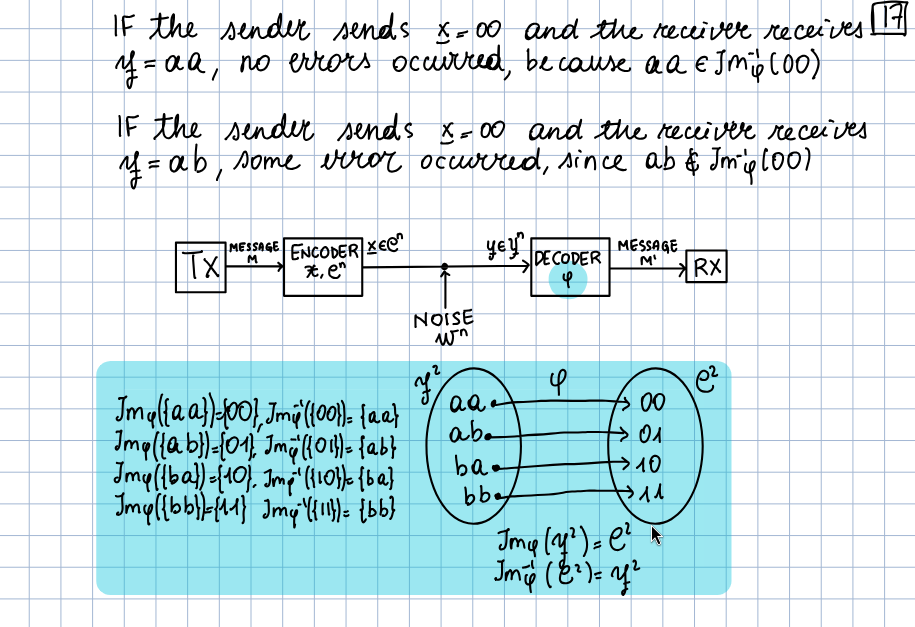 17
IF the sender sends x = 00 and the receiver receives
y = aa, no errors occurred, because aa ∈ Im⁻¹φ(00)
IF the sender sends x = 00 and the receiver receives
y = ab, some error occurred, since ab ∉ Im⁻¹φ(00)
TX
MESSAGE
M
ENCODER
x, Cⁿ
x ∈ Cⁿ
NOISE
Wⁿ
y ∈ Yⁿ
DECODER
φ
MESSAGE
M'
RX
Imφ({aa})={00}, Imφ⁻¹({00})= {aa}
Imφ({ab})={01}, Imφ⁻¹({01})= {ab}
Imφ({ba})={10}, Imφ⁻¹({10})= {ba}
Imφ({bb})={11} Imφ⁻¹({11})= {bb}
Y² φ C²
aa 00
ab 01
ba 10
bb 11
Imφ(Y²) = C²
Im⁻¹φ(C²) = Y²